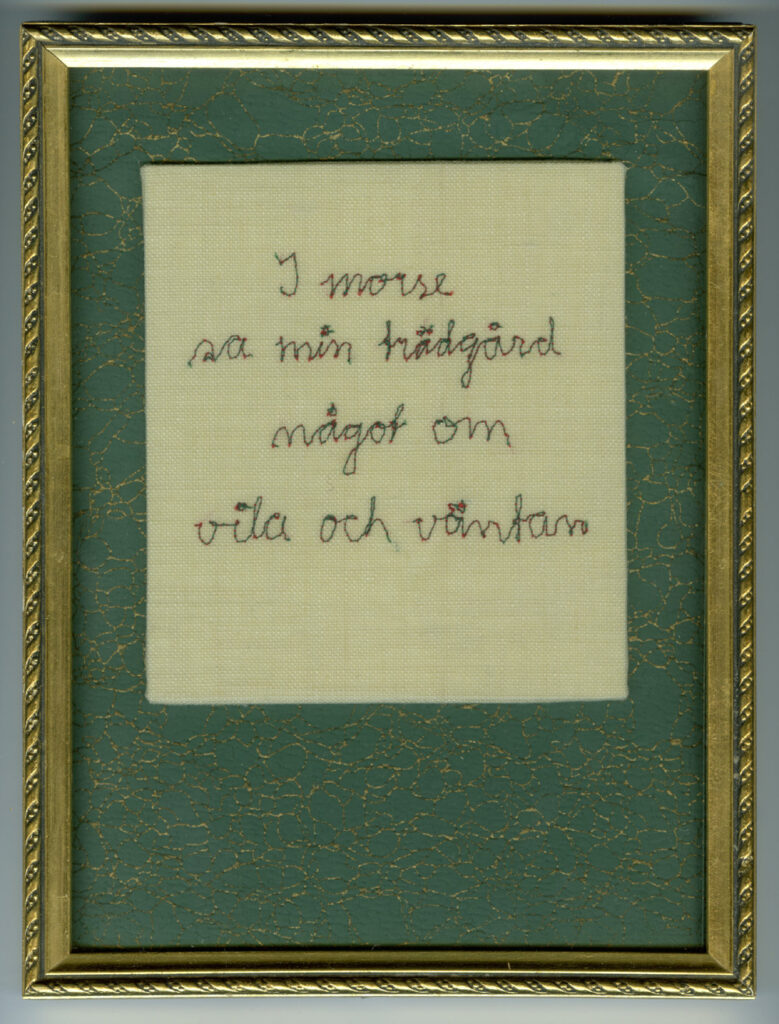 I morse
sa min trädgård
något om
vila och väntan